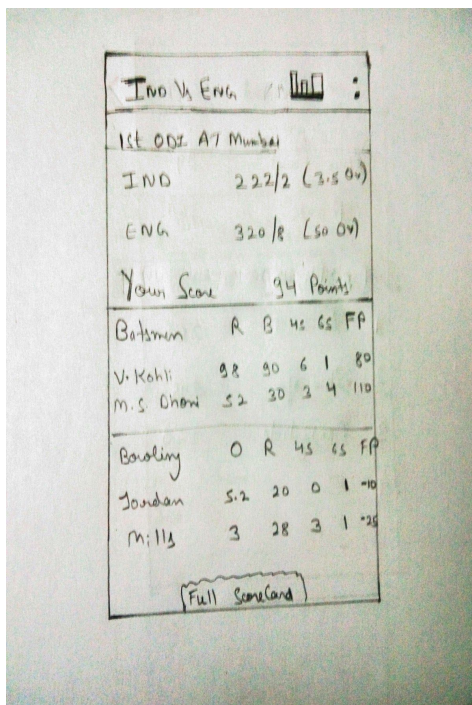 IND Vs ENG
1st ODI AT Mumbai
IND 222/2 (3.5 Ov)
ENG 320/8 (50 Ov)
Your Score 94 Points
Batsmen R B 4S 6S FP
V. Kohli 98 90 6 1 80
M.S. Dhoni 52 30 3 4 110
Bowling O R 4S 6S FP
Jordan 5.2 20 0 1 -10
Mills 3 28 3 1 -25
Full ScoreCard